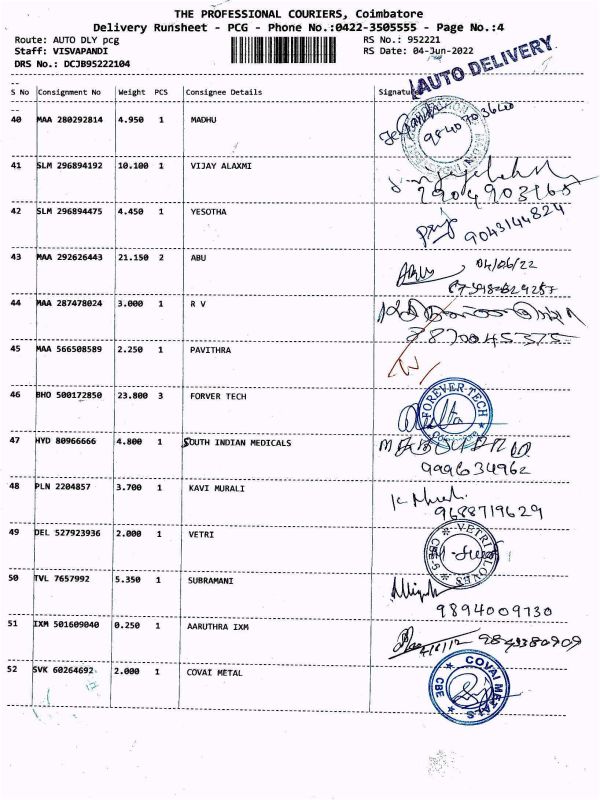 THE PROFESSIONAL COURIERS, Coimbatore
Delivery Runsheet - PCG - Phone No.:0422-3505555 - Page No.:4
Route: AUTO DLY pcg RS No.: 952221
Staff: VISVAPANDI RS Date: 04-Jun-2022
DRS No.: DCJB95222104
AUTO DELIVERY
S No Consignment No Weight PCS Consignee Details Signature
40 MAA 280292814 4.950 1 MADHU
9840703600
41 SLM 296894192 10.100 1 VIJAY ALAXMI
42 SLM 296894475 4.450 1 YESOTHA
9043144824
43 MAA 292626443 21.150 2 ABU
04/06/22
44 MAA 287478024 3.000 1 R V
45 MAA 566508589 2.250 1 PAVITHRA
46 BHO 500172850 23.800 3 FORVER TECH
FOREVER-TECH
47 HYD 80966666 4.800 1 SOUTH INDIAN MEDICALS
999634962
48 PLN 2204857 3.700 1 KAVI MURALI
9688719629
49 DEL 527923936 2.000 1 VETRI
VETRI GLOVES CBE-9
50 TVL 7657992 5.350 1 SUBRAMANI
9894009730
51 IXM 501609040 0.250 1 AARUTHRA IXM
52 SVK 60264692 2.000 1 COVAI METAL
COVAI METALS CBE